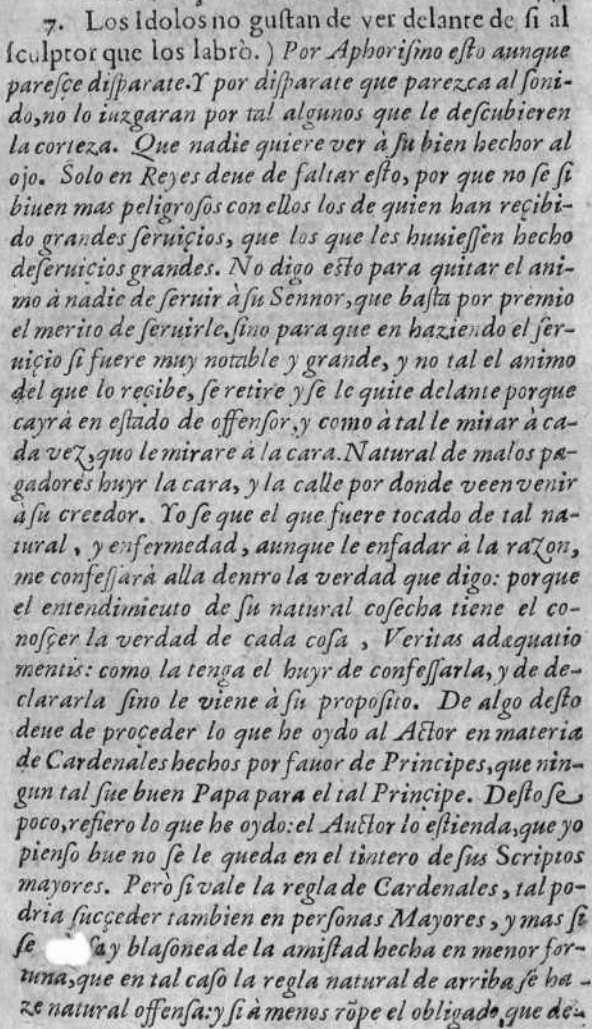 7. Los Idolos no gustan de ver delante de si al
sculptor que los labrò. ) Por Aphorismo esto aunque
paresçe disparate. Y por disparate que parezca al soni-
do, no lo iuzgaran por tal algunos que le descubieren
la corteza. Que nadie quiere ver à su bien hechor al
ojo. Solo en Reyes deue de faltar esto, por que no se si
biuen mas peligrosos con ellos los de quien han reçibi-
do grandes seruiçios, que los que les huuiessen hecho
deseruicios grandes. No digo esto para quitar el ani-
mo à nadie de seruir à su Sennor, que basta por premio
el merito de seruirle, sino para que en haziendo el ser-
uiçio si fuere muy notable y grande, y no tal el animo
del que lo reçibe, se retire y se le quite delante porque
cayrà en estado de offensor, y como à tal le mirar à ca-
da vez, quo le mirare à la cara. Natural de malos pa-
gadores huyr la cara, y la calle por donde veen venir
à su creedor. Yo se que el que fuere tocado de tal na-
tural, y enfermedad, aunque le enfadar à la razon,
me confessarà alla dentro la verdad que digo: porque
el entendimieuto de su natural cosecha tiene el co-
nosçer la verdad de cada cosa, Veritas adæquatio
mentis: como la tenga el huyr de confessarla, y de de-
clararla sino le viene à su proposito. De algo desto
deue de proçeder lo que he oydo al Actor en materia
de Cardenales hechos por fauor de Principes, que nin-
gun tal fue buen Papa para el tal Prinçipe. Desto se
poco, refiero lo que he oydo: el Auctor lo estienda, que yo
pienso bue no se le queda en el tintero de sus Scriptos
mayores. Però si vale la regla de Cardenales, tal po-
dria sucçeder tambien en personas Mayores, y mas si
se y blasonea de la amistad hecha en menor for-
tuna, que en tal caso la regla natural de arriba se ha-
ze natural offensa: y si à menos rõpe el obligado, que de-